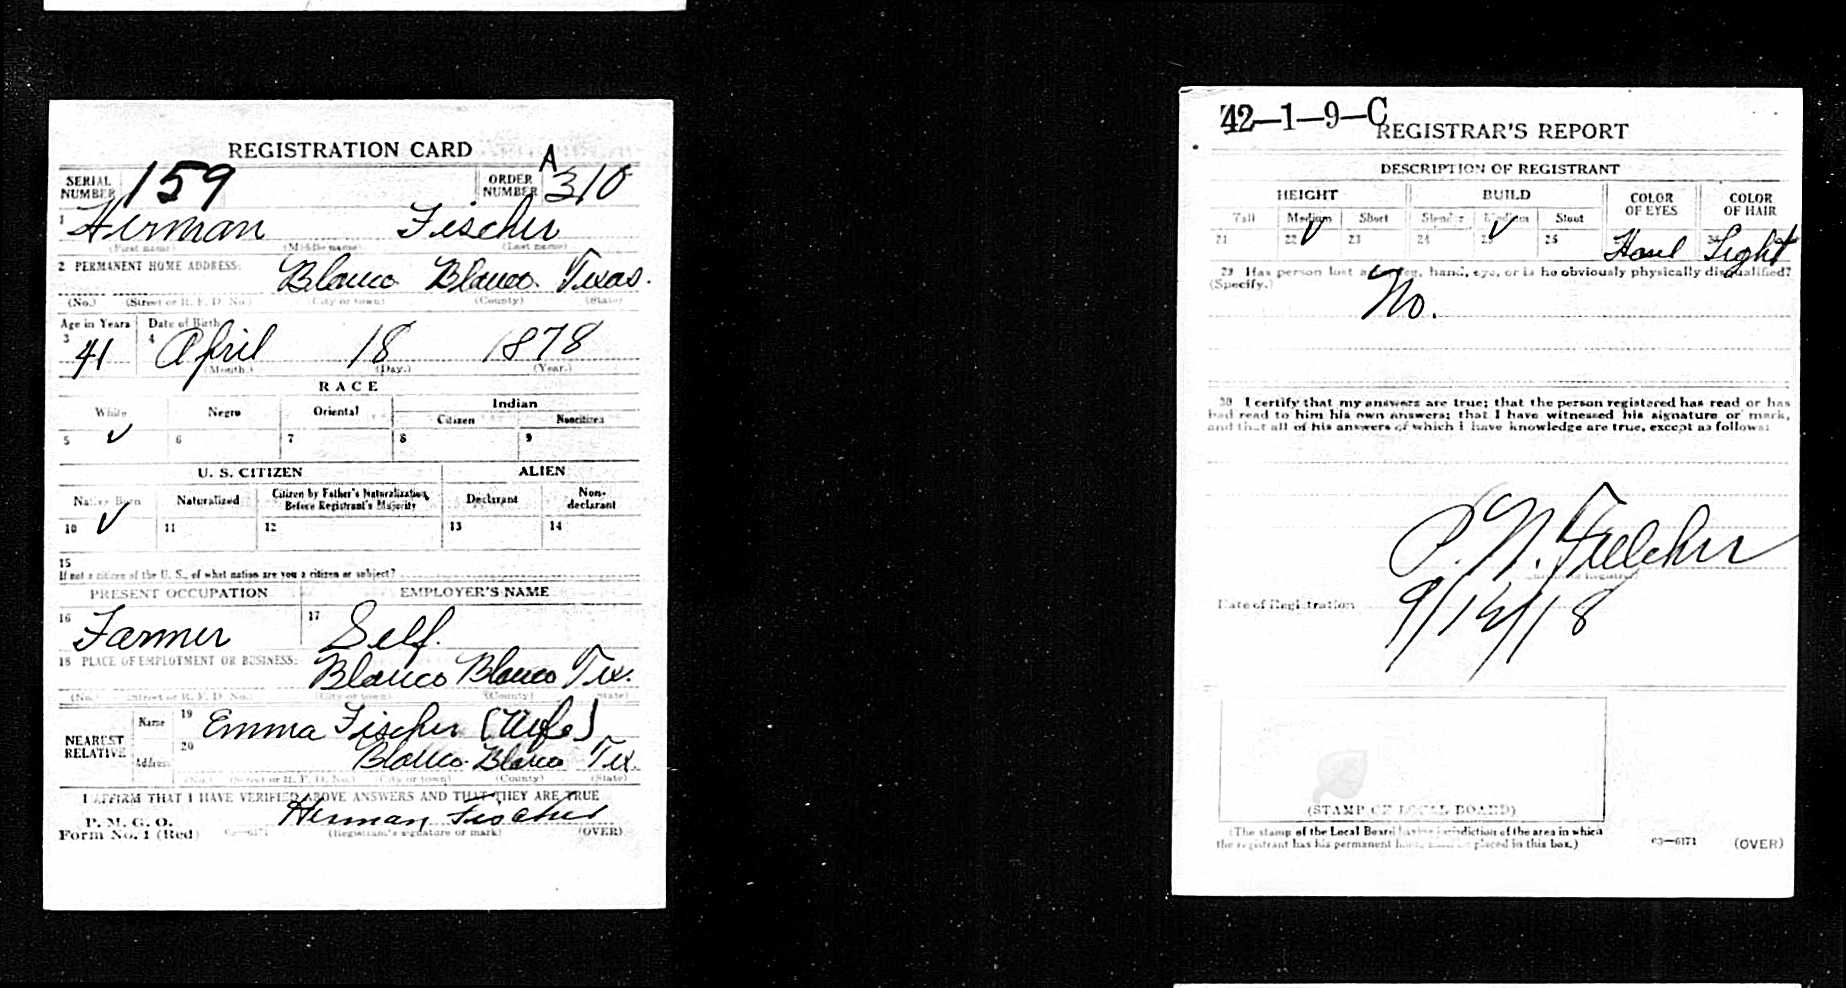 REGISTRATION CARD
SERIAL NUMBER 159 ORDER NUMBER A 310
1 Herman Fischer
(First name) (Middle name) (Last name)
2 PERMANENT HOME ADDRESS:
Blanco Blanco Texas.
(No.) (Street or R. F. D. No.) (City or town) (County) (State)
Age in Years Date of Birth
3 41 4 April 18 1878
(Month.) (Day.) (Year.)
RACE
White Negro Oriental Indian
Citizen Noncitizen
5 ✓ 6 7 8 9
U. S. CITIZEN ALIEN
Native Born Naturalized Citizen by Father's Naturalization Before Registrant's Majority Declarant Non-declarant
10 ✓ 11 12 13 14
15
If not a citizen of the U. S., of what nation are you a citizen or subject?
PRESENT OCCUPATION EMPLOYER'S NAME
16 Farmer 17 Self.
18 PLACE OF EMPLOYMENT OR BUSINESS:
Blanco Blanco Tex.
(No.) (Street or R. F. D. No.) (City or town) (County) (State)
NEAREST RELATIVE Name 19 Emma Fischer (Wife)
Address 20 Blanco Blanco Tex.
(No.) (Street or R. F. D. No.) (City or town) (County) (State)
I AFFIRM THAT I HAVE VERIFIED ABOVE ANSWERS AND THAT THEY ARE TRUE
P. M. G. O.
Form No. 1 (Red) 03—6171 Herman Fischer
(Registrant's signature or mark) (OVER)
42—1—9—C
REGISTRAR'S REPORT
DESCRIPTION OF REGISTRANT
HEIGHT BUILD COLOR OF EYES COLOR OF HAIR
Tall Medium Short Slender Medium Stout
21 22 ✓ 23 24 25 ✓ 25 Hasel Light
29 Has person lost arm, leg, hand, eye, or is he obviously physically disqualified?
(Specify.)
No.
30 I certify that my answers are true; that the person registered has read or has
had read to him his own answers; that I have witnessed his signature or mark,
and that all of his answers of which I have knowledge are true, except as follows:
(Signature of Registrar)
Date of Registration 9/12/18
(STAMP OF LOCAL BOARD)
(The stamp of the Local Board having jurisdiction of the area in which
the registrant has his permanent home shall be placed in this box.)
03—6171 (OVER)